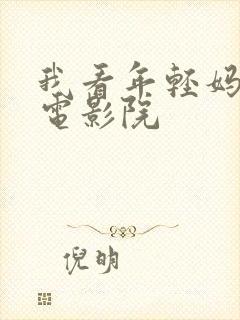 我看年轻妈
電影院
倪明